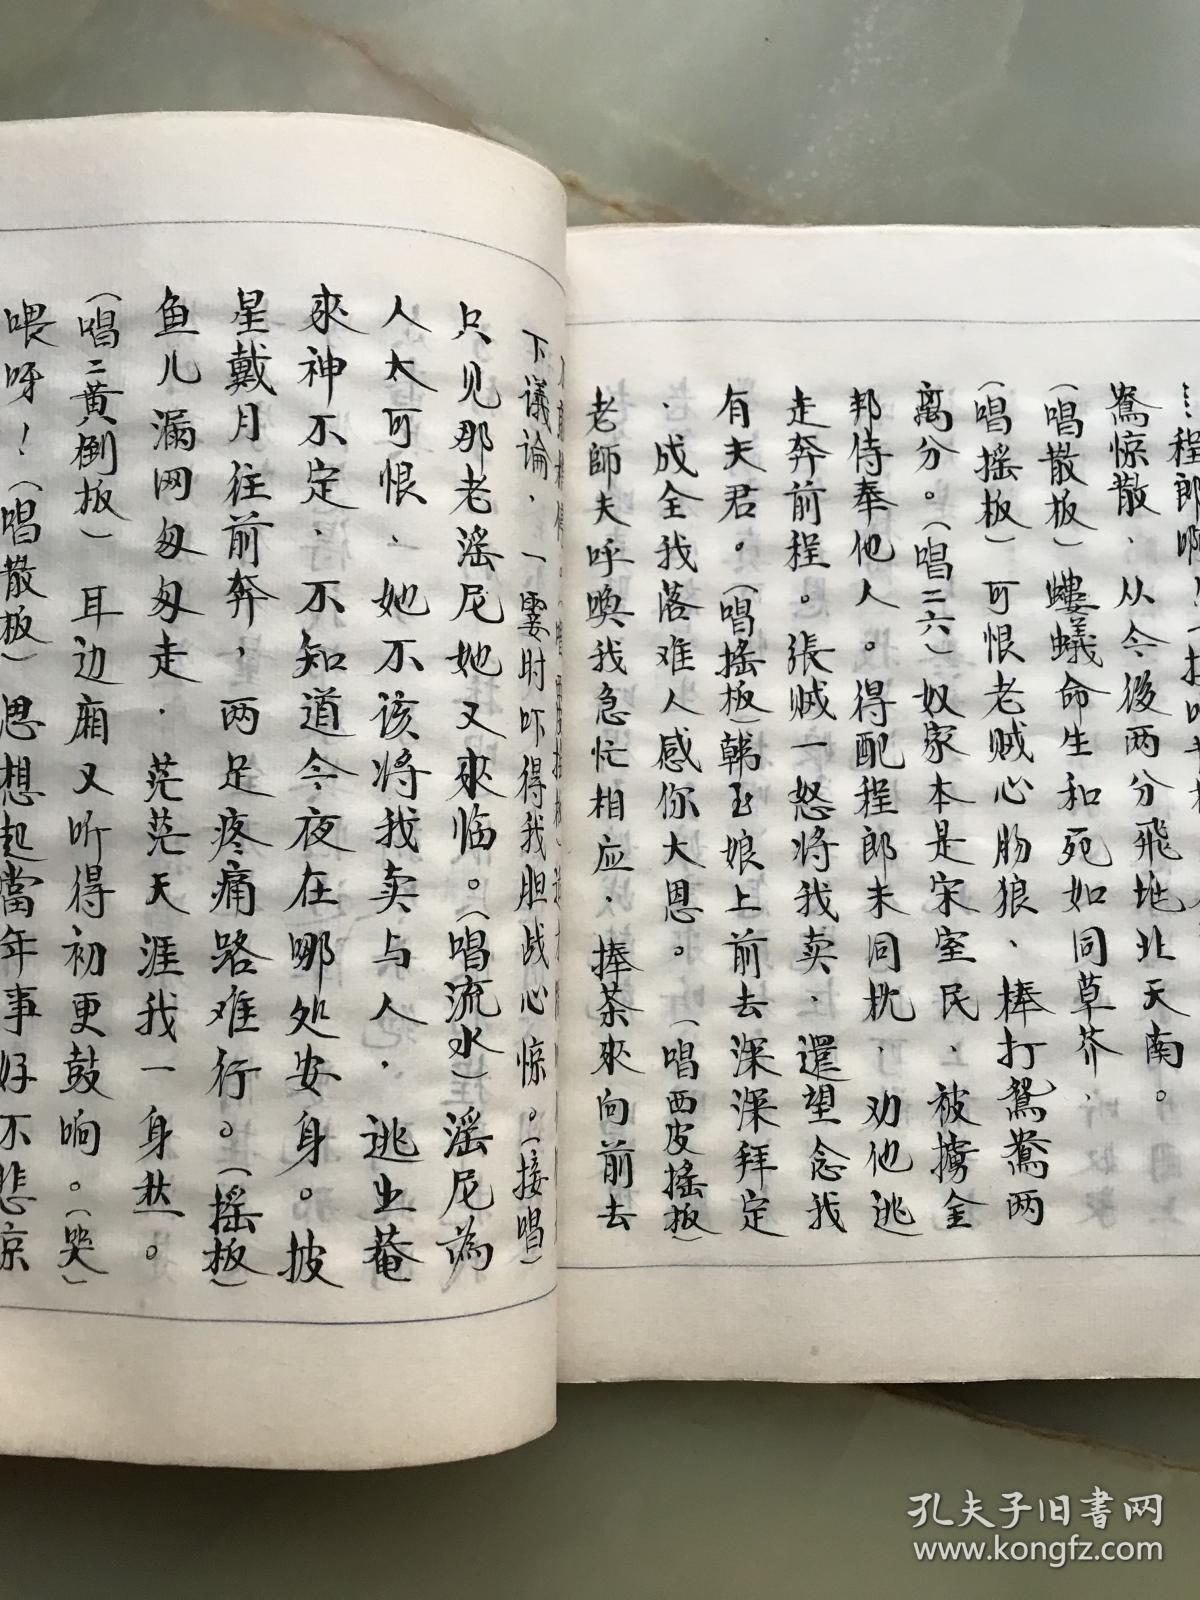 程郎啊！
鴛惊散．从今後两分飛地北天南。
（唱散板）蝼蟻命生和死如同草芥．
（唱摇板）可恨老贼心肠狼、棒打鴛鴦两
离分。（唱二六）奴家本是宋室民、被掳金
邦侍奉他人。得配程郎未同枕．劝他逃
走奔前程。張贼一怒将我卖．還望念我
有夫君。（唱摇板）韩玉娘上前去深深拜定
．成全我落难人感你大恩。（唱西皮摇板）
老師夫呼喚我急忙相应．捧茶來向前去
下議論．一霎时吓得我胆战心惊。（接唱）
只见那老滛尼她又來临。（唱流水）滛尼為
人太可恨、她不该将我卖与人．逃出菴
來神不定．不知道今夜在哪处安身。披
星戴月往前奔，两足疼痛路难行。（摇板）
鱼儿漏网匆匆走．茫茫天涯我一身愁。
（唱二黄倒板）耳边廂又听得初更鼓响。（哭）
喂呀！（唱散板）思想起當年事好不悲凉
孔夫子旧书网
www.kongfz.com